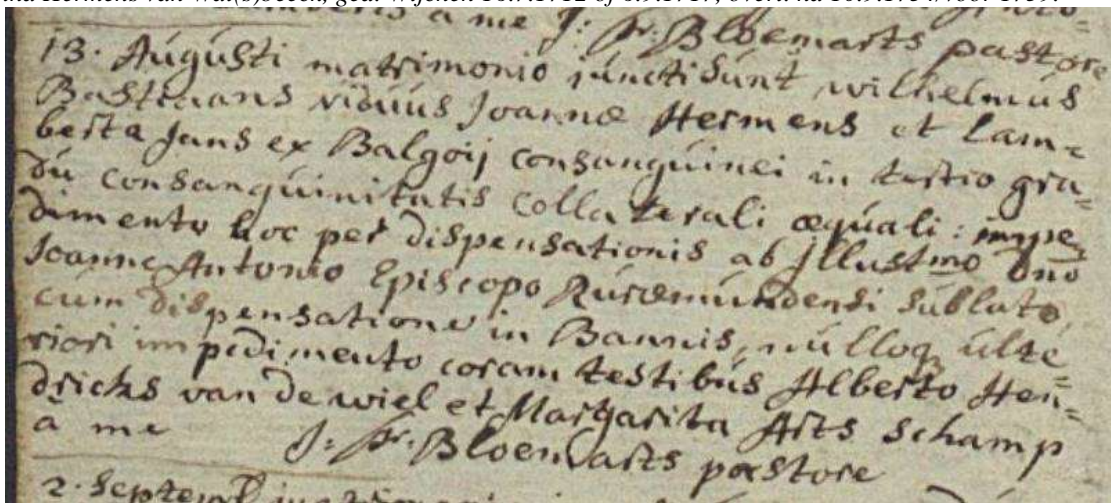 a me J: Fr: Bloemarts pastore
13. Augusti matrimonio juncti sunt wilhelmus
Bastiaans viduus Joannæ Hermens et Lam=
berta Jans ex Balgoij consanguinei in tertio gra=
du consanguinitatis collaterali æquali: impe=
dimento hoc per dispensationis ab Illustmo Dno
Joanne Antonio Episcopo Ruræmundensi sublato,
cum dispensatione in Bannis, nulloq ulte=
riori impedimento coram testibus Alberto Hen=
dricks van de wiel et Margarita Arts schamp
à me J: Fr: Bloemarts pastore
2. Septemb